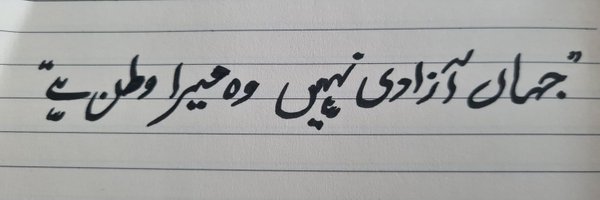 "جہاں آزادی نہیں وہ میرا وطن ہے"